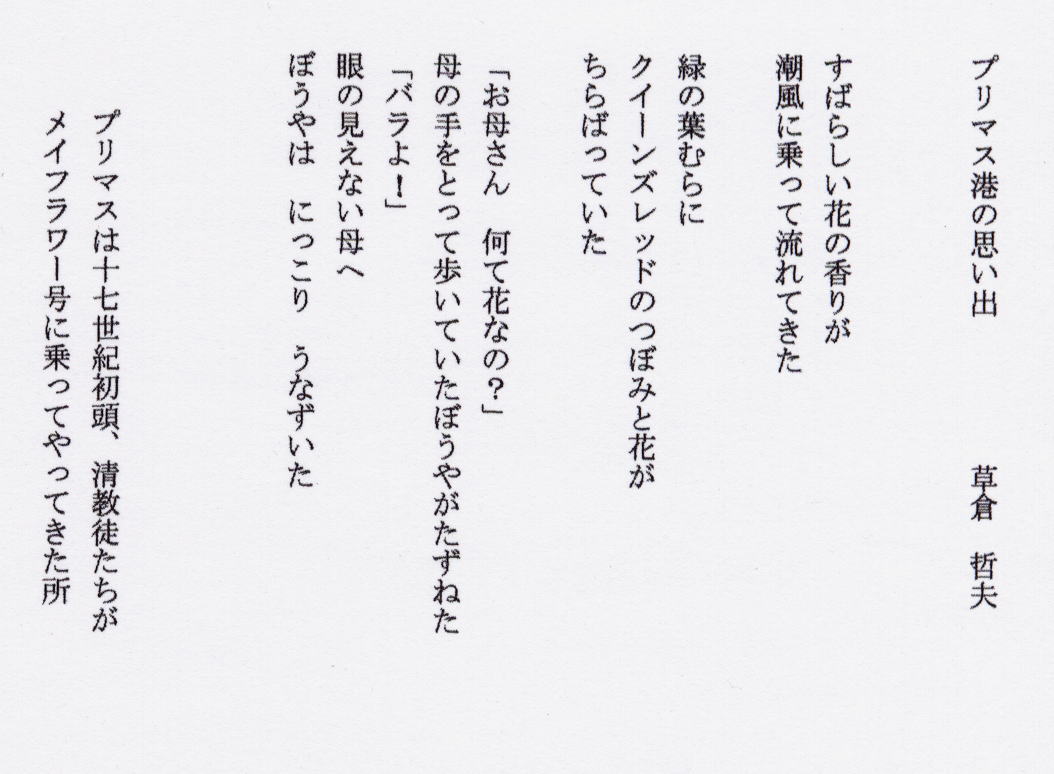 プリマス港の思い出　　　　　草倉　哲夫
すばらしい花の香りが
潮風に乗って流れてきた
緑の葉むらに
クイーンズレッドのつぼみと花が
ちらばっていた
「お母さん　何て花なの？」
母の手をとって歩いていたぼうやがたずねた
「バラよ！」
眼の見えない母へ
ぼうやは　にっこり　うなずいた
プリマスは十七世紀初頭、清教徒たちが
メイフラワー号に乗ってやってきた所